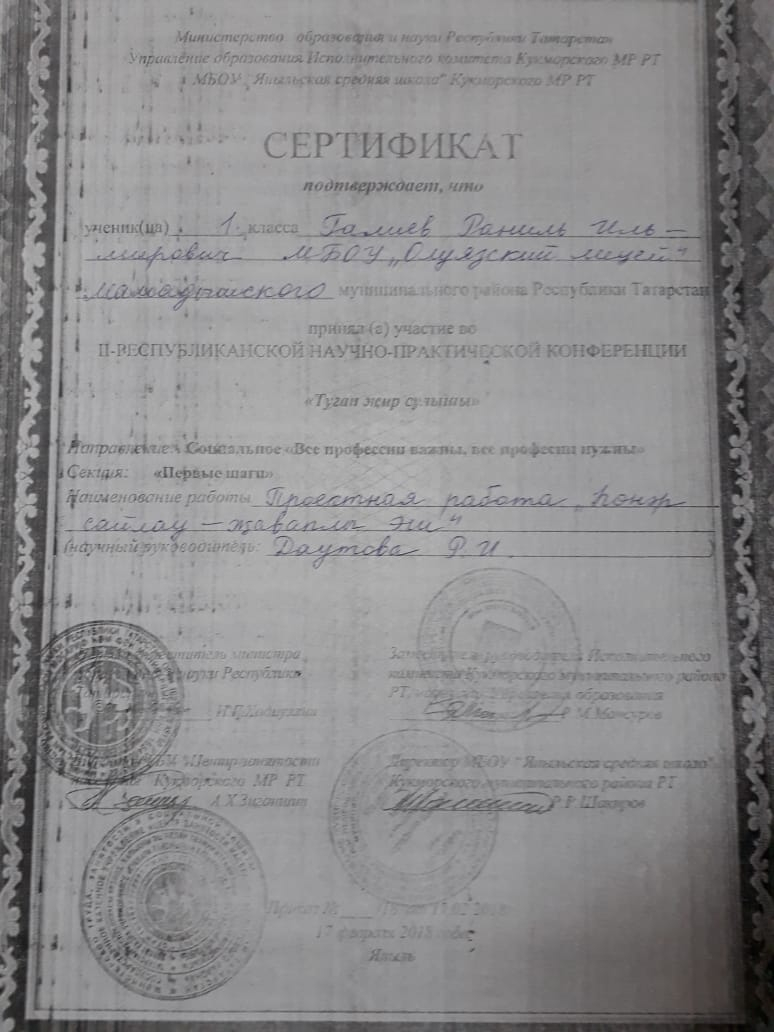 Министерство образования и науки Республики Татарстан
Управление образования Исполнительного комитета Кукморского МР РТ
МБОУ "Яныльская средняя школа" Кукморского МР РТ
СЕРТИФИКАТ
подтверждает, что
ученик(ца) 1 класса Галиев Раниль Иль-
мирович МБОУ „Олуязский лицей"
Мамадышского муниципального района Республики Татарстан
принял (а) участие во
II-РЕСПУБЛИКАНСКОЙ НАУЧНО-ПРАКТИЧЕСКОЙ КОНФЕРЕНЦИИ
«Туган жир сулышы»
Направление: Социальное «Все профессии важны, все професии нужны»
Секция: «Первые шаги»
Наименование работы Проектная работа „Һөнәр
сайлау – җаваплы эш"
(научный руководитель: Даутова Р. И. )
министра
науки Республики
Заместитель руководителя Исполнительного
комитета Кукморского муниципального района
РТ, образования
Р.М.Мансуров
"Центр занятости
Кукморского МР РТ
А.Х.Зиганшин
Директор МБОУ "Яныльская средняя школа"
Кукморского муниципального района РТ
Р.Р.Шакиров
Приказ № от 17.02.2018
17 февраля 2018 года
Яныль